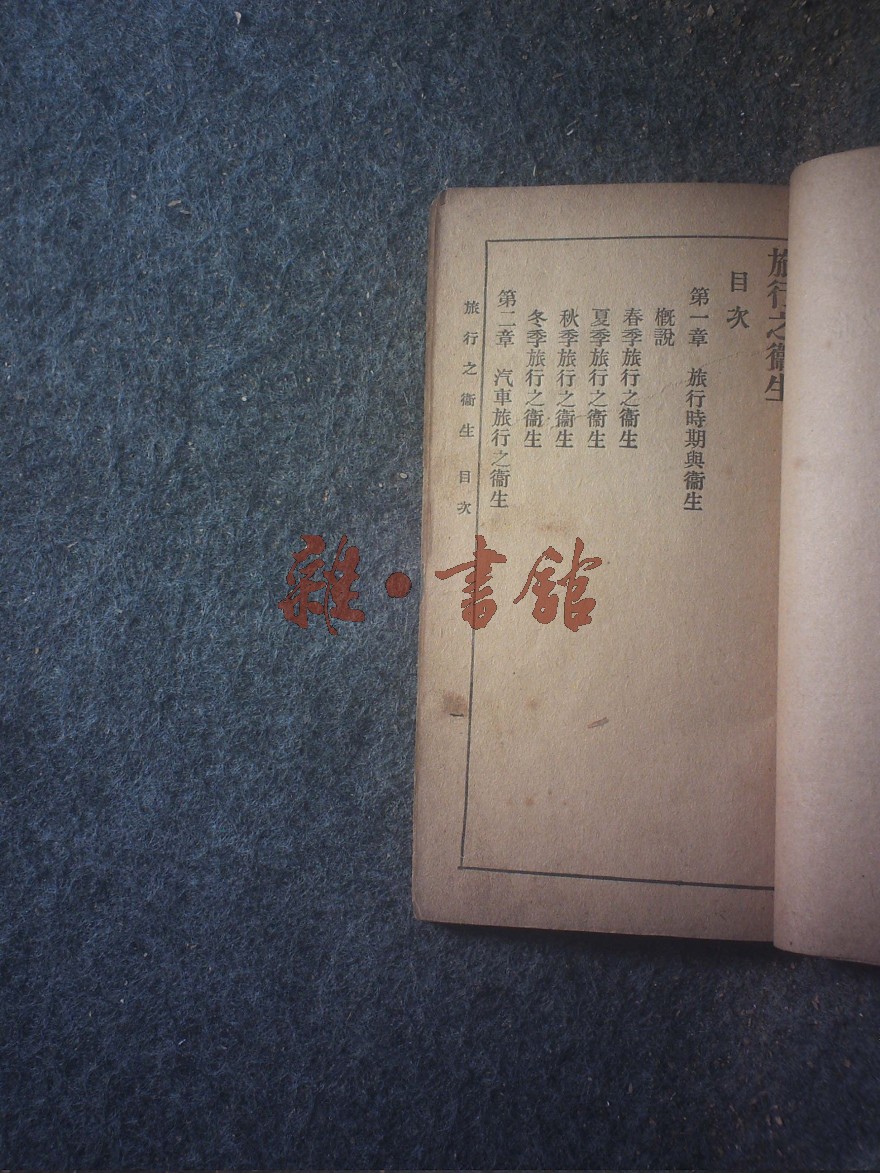 旅行之衞生
目次
第一章　旅行時期與衞生
概說
春季旅行之衞生
夏季旅行之衞生
秋季旅行之衞生
冬季旅行之衞生
第二章　汽車旅行之衞生
旅行之衞生　目次
一
雜·書館